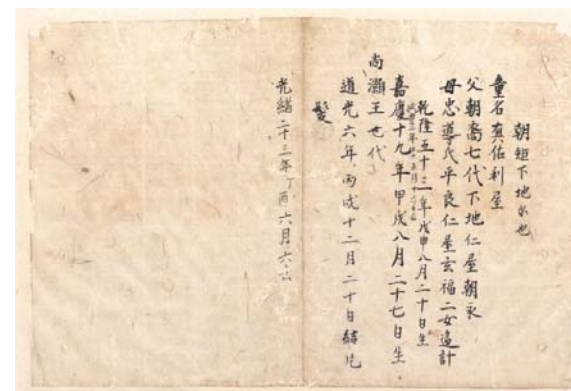 朝矩下地
童名真佑利屋
父朝喬七代下地仁屋朝永
母忠導氏平良仁屋玄福二女遠計
乾隆五十二年戊申八月二十日生
嘉慶十九年甲戌八月二十七日生
尚灝王世代
道光六年丙戌十二月二十日結
髪
光緒二十三年丁酉六月六